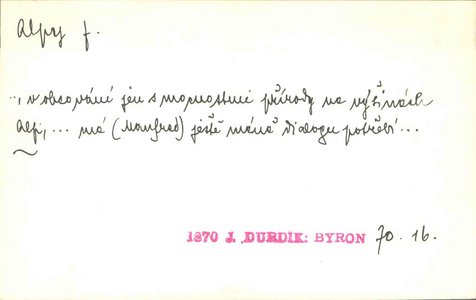 Alpy f.
„, v obcování jen s mocnostmi přírody na výšinách
Alp, ... má (Manfred) ještě méně dialogu potřebí ...
1870 J. DURDÍK: BYRON 70. 16.